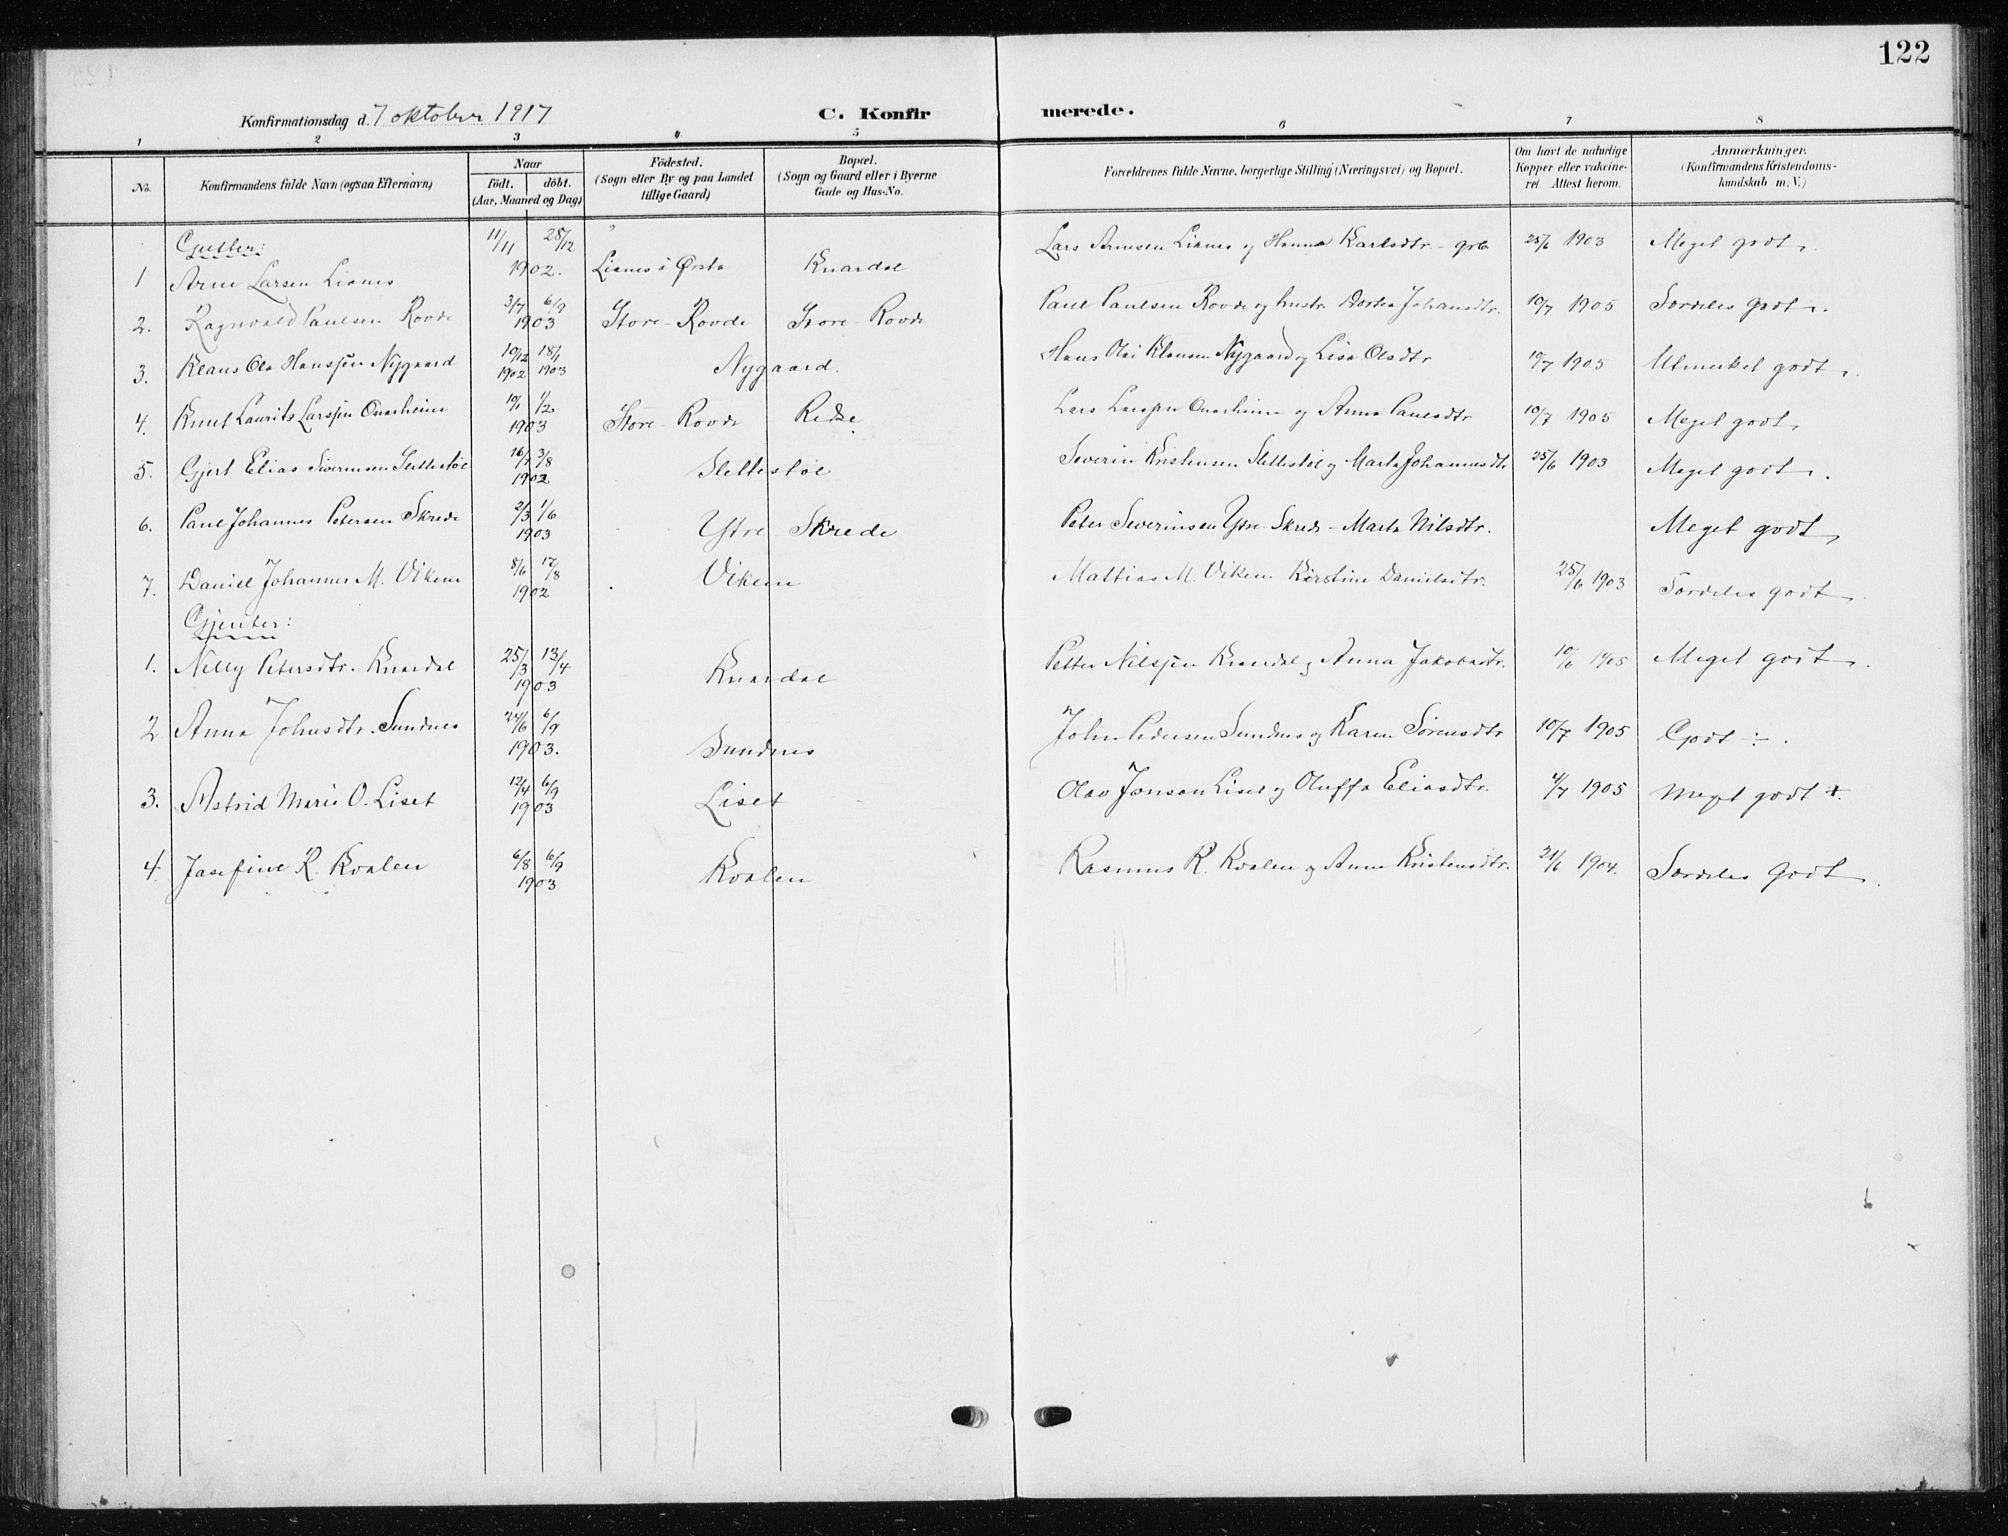 122
Konfirmationsdag d. 7 oktober 1917
C. Konfirmerede.
1 2 3 4 5 6 7 8
No. | Konfirmandens fulde Navn (ogsaa Efternavn) | Naar født. døbt. (Aar, Maaned og Dag) | Fødested. (Sogn eller By og paa Landet tillige Gaard) | Bopæl. (Sogn og Gaard eller i Byerne Gade og Hus-No. | Forældrenes fulde Navne, borgerlige Stilling (Næringsvei) og Bopæl. | Om havt de naturlige Kopper eller vakcineret. Attest herom. | Anmærkninger. (Konfirmandens Kristendomskundskab m. V.)
Gutter:
1 Arne Larsen Lianes 11/11 28/12 1902. Lianes i Ørsta Knardal Lars Arnesen Lianes og Hanna Karlsdtr - 25/6 1903 Meget godt.
2. Ragnvald Paulsen Rovde 3/7 6/9 1903 Store-Rovde Store-Rovde Paul Paulsen Rovde og hustr. Dortea Johansdtr. 10/7 1905 Særdeles godt.
3. Klaus Ola Hanssen Nygaard 10/12 1902 18/1 1903 Nygaard. Hans Olai Klausen Nygaard og Lisa Olsdtr 10/7 1905 Utmerket godt.
4. Knut Laurits Larssen Aarheim 10/1 1/2 1903 Store-Rovde Lars Larssen og Anna Paulsdtr 10/7 1905 Meget godt.
5. Gjert Elias Siverinsen Slettestøl 16/7 3/8 1902 Slettestøl Severin Kristensen Slettestøl og Marta Johannesdtr 25/6 1903 Meget godt.
6. Paul Johannes Petersen Skrede 2/3 1/6 1903 Ytre Skrede Peter Severinsen Ytre-Skrede - Marta Nilsdtr. Meget godt.
7. Daniel Johannes M. Viken 8/6 17/8 1902 Viken Mattias M. Viken Kirstine Danielsdtr. 25/6 1903 Særdeles godt.
Gjenter:
1. Nelly Petersdtr. Knardal 25/3 13/4 1903 Knardal Petter Nilssen Knardal og Anna Jakobsdtr. 10/6 1905 Meget godt.
2 Anna Johnsdtr. Sundnes 24/6 6/9 1903. Sundnes John Pedersen Sundnes og Karen Sørensdtr 10/7 1905 Godt ÷.
3. Astrid Marie O. Liset 12/4 6/9 1903 Liset Olav Jonson Liset og Oluffa Eliasdtr. 4/7 1905 Meget godt +.
4. Josefine R. Kvalen 6/8 6/9 1903 Kvalen Rasmus R. Kvalen og Anne Kristensdtr. 21/6 1904. Særdeles godt.